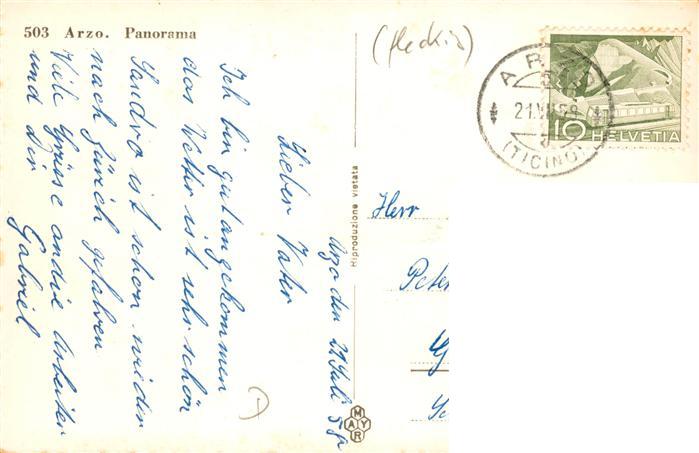 503 Arzo. Panorama
(fleckig)
ARZO
21.VII.58
(TICINO)
10 HELVETIA
Riproduzione vietata
MAYR
Arzo den 21 Juli 58
Lieber Vater
Ich bin gut angekommen
das Wetter ist sehr schön
Sandro ist schon wieder
nach Zürich gefahren
Viele Grüsse an die Arbeiter
und dir Gabriel
Herr
Peter